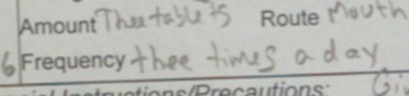 Amount Thee tablets Route Mouth
6 Frequency thee times a day
Instructions/Precautions: Gi